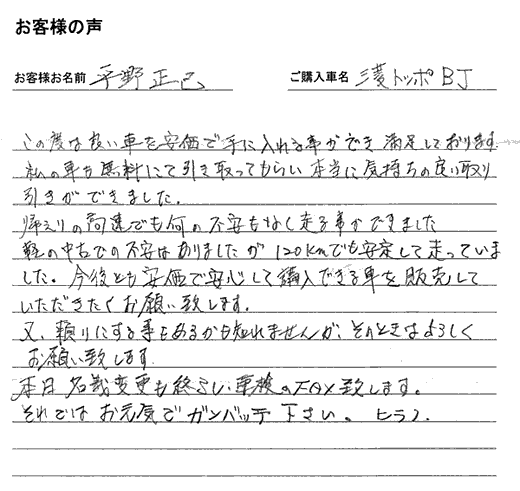 お客様の声
お客様お名前 平野正己 ご購入車名 三菱トッポBJ
この度は良い車を安価で手に入れる事ができ満足しております
私の車も無料にて引き取ってもらい本当に気持ちの良い取り
引きができました.
帰えりの高速でも何の不安もなく走る事ができました
軽の中古での不安はありましたが120kmでも安定して走っていま
した。今後とも安価で安心して購入できる車を販売して
いただきたくお願い致します.
又、頼りにする事もあるかも知れませんが、そのときはよろしく
お願い致します.
本日名義変更も終らし、車検のFAX致します。
それではお元気でガンバッテ下さい。ヒラノ.